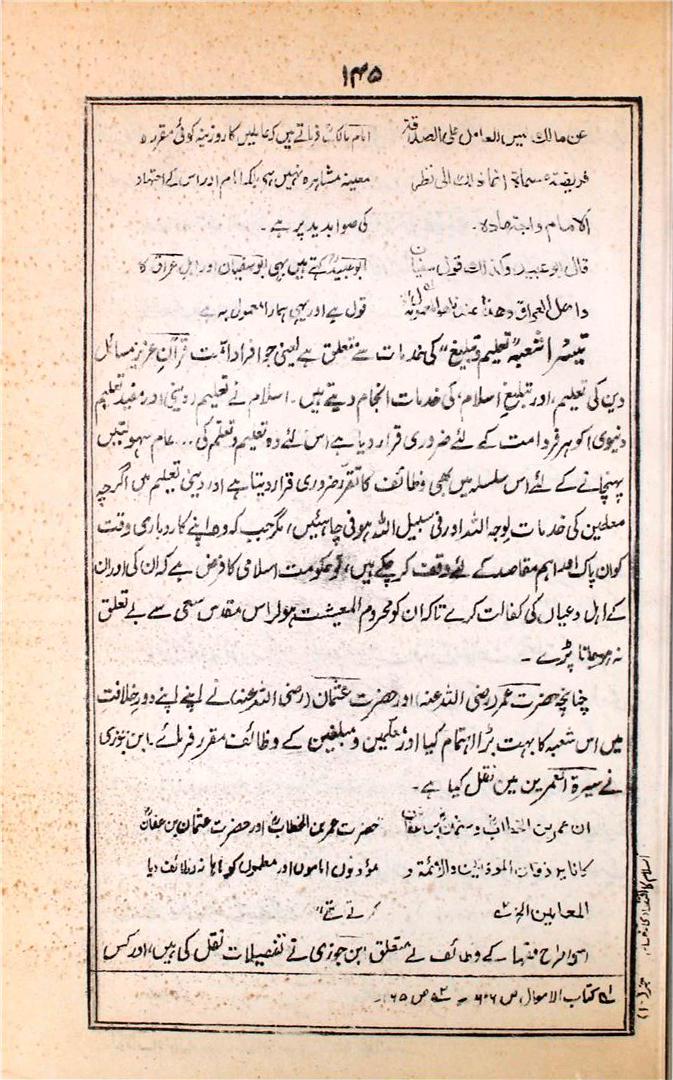 ۱۴۵
عن مالك ليس للعامل على الصدقة
فريضة مسماة انما ذلك الى نظر
الامام واجتهاده۔
قال ابو عبيد وكذلك قول سفيان
واهل العراق وهذا عندنا هو المعمول به
امام مالک فرماتے ہیں کہ عاملین کا روزینہ کوئی مقررہ
معینہ مشاہرہ نہیں ہے بلکہ امام اور اس کے اجتہاد
کی صوابدید پر ہے۔
ابو عبید کہتے ہیں یہی ابو سفیان اور اہل عراق کا
قول ہے اور یہی ہمارا معمول بہ ہے
تیسرا شعبہ "تعلیم و تبلیغ" کی خدمات سے متعلق ہے یعنی جو افراد امت قرآن عزیز مسائل
دین کی تعلیم، اور تبلیغ اسلام، کی خدمات انجام دیتے ہیں۔ اسلام نے تعلیم (دینی) اور مفید تعلیم
دنیوی) کو ہر فرد امت کے لئے ضروری قرار دیا ہے اس لئے وہ تعلیم و تعلم کی ... عام سہولتیں
پہنچانے کے لئے اس سلسلہ میں بھی وظائف کا تقرر ضروری قرار دیتا ہے اور دینی تعلیم میں اگرچہ
معلمین کی خدمات لوجہ اللہ اور فی سبیل اللہ ہونی چاہئیں، مگر جب کہ وہ اپنے کاروباری وقت
کو ان پاک اور اہم مقاصد کے لئے وقف کر چکے ہیں، تو حکومت اسلامی کا فرض ہے کہ ان کی اور ان
کے اہل و عیال کی کفالت کرے تاکہ ان کو محروم المعیشت ہو کر اس مقدس سعی سے بے تعلق
نہ ہو جانا پڑے۔
چنانچہ حضرت عمر (رضی اللہ عنہ) اور حضرت عثمان (رضی اللہ عنہ) نے اپنے اپنے دور خلافت
میں اس شعبہ کا بہت بڑا اہتمام کیا اور معلمین و مبلغین کے وظائف مقرر فرمائے۔ ابن جوزی
نے سیرۃ العمرین میں نقل کیا ہے۔
ان عمر بن الخطاب وعثمان بن عفان
كانا يرزقان المؤذنين والائمة و
المعلمين الخ ۲ے
حضرت عمر بن الخطاب اور حضرت عثمان بن عفان
مؤذنوں اماموں اور معلموں کو ماہانہ وظائف دیا
کرتے تھے"
اسی طرح فقہاء کے وظائف کے متعلق ابن جوزی نے تفصیلات نقل کی ہیں، اور کس
۱ے کتاب الاموال ص ۶۰۶۔ ۲ے ص ۱۶۵۔
اسلام کا اقتصادی نظام
(۱۰)